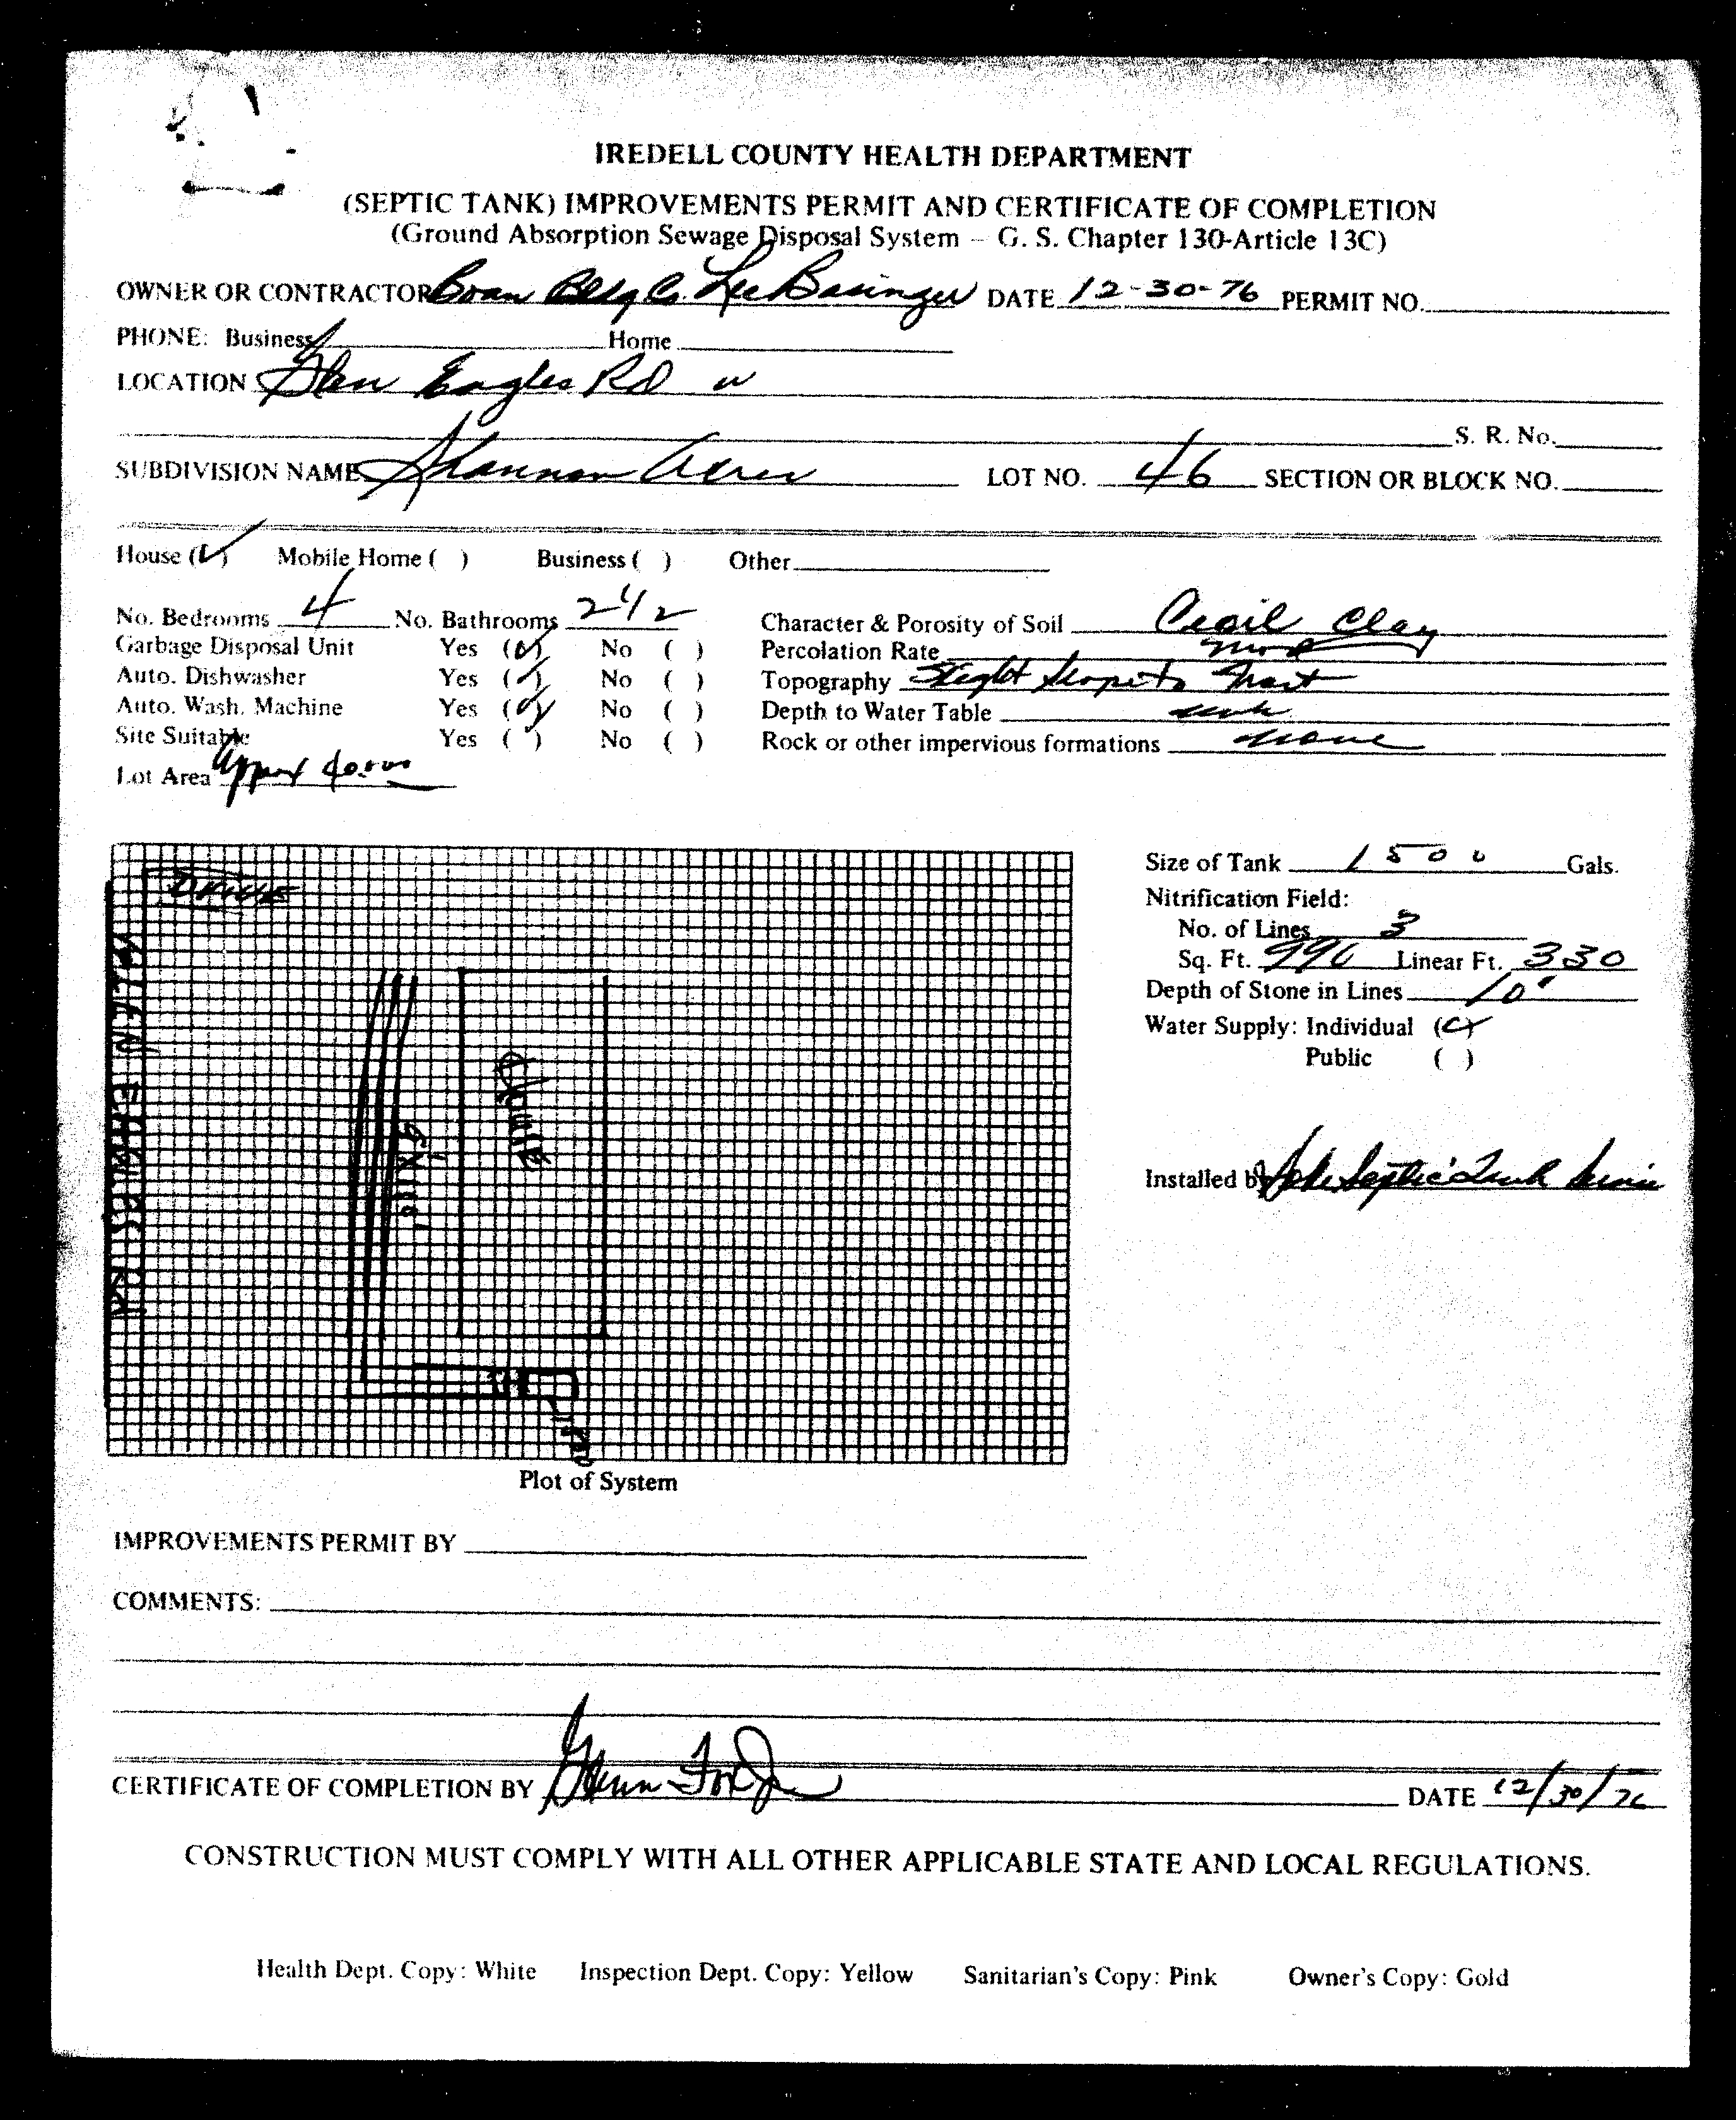 IREDELL COUNTY HEALTH DEPARTMENT
(SEPTIC TANK) IMPROVEMENTS PERMIT AND CERTIFICATE OF COMPLETION
(Ground Absorption Sewage Disposal System – G. S. Chapter 130-Article 13C)
OWNER OR CONTRACTOR Boan Bldg Co. Lee Basinger DATE 12-30-76 PERMIT NO.
PHONE: Business Home
LOCATION Glen Eagles Rd W
S. R. No.
SUBDIVISION NAME Shannon Acres LOT NO. 46 SECTION OR BLOCK NO.
House (✓) Mobile Home ( ) Business ( ) Other
No. Bedrooms 4 No. Bathrooms 2 1/2 Character & Porosity of Soil Cecil Clay
Garbage Disposal Unit Yes (✓) No ( ) Percolation Rate mod
Auto. Dishwasher Yes (✓) No ( ) Topography Slight slope to
Auto. Wash. Machine Yes (✓) No ( ) Depth to Water Table unk
Site Suitable Yes ( ) No ( ) Rock or other impervious formations none
Lot Area approx
DRIVE
GLEN EAGLES Rd
House
Size of Tank 1500 Gals.
Nitrification Field:
No. of Lines 3
Sq. Ft. 990 Linear Ft. 330
Depth of Stone in Lines 10"
Water Supply: Individual (✓)
Public ( )
Installed by Septic Tank Service
Plot of System
IMPROVEMENTS PERMIT BY
COMMENTS:
CERTIFICATE OF COMPLETION BY Glenn DATE 12/30/76
CONSTRUCTION MUST COMPLY WITH ALL OTHER APPLICABLE STATE AND LOCAL REGULATIONS.
Health Dept. Copy: White Inspection Dept. Copy: Yellow Sanitarian's Copy: Pink Owner's Copy: Gold